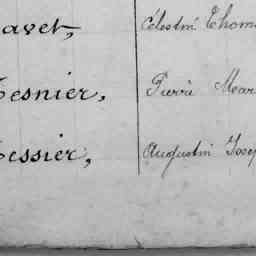 avet, Célestin Thom
esnier, Pierre Mar
essier, Augustin Josep